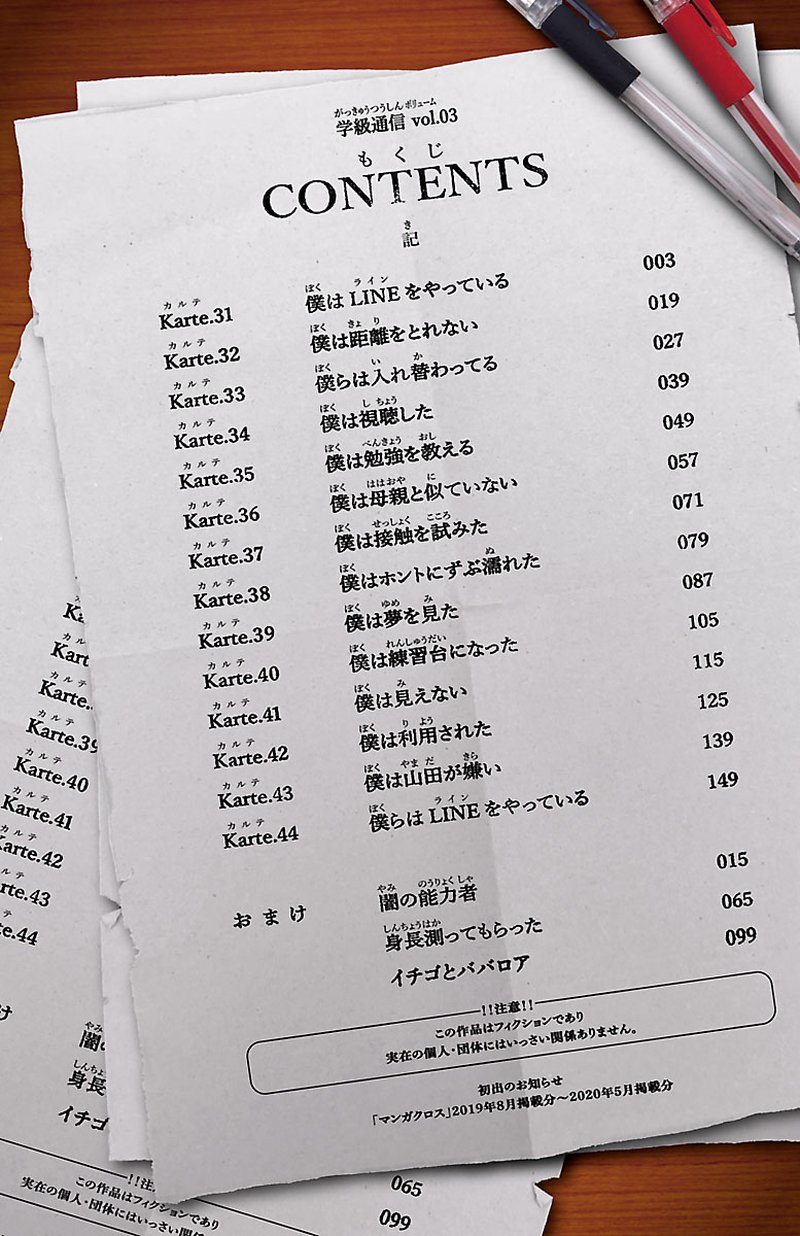 学級通信 vol.03
もくじ
CONTENTS
記
Karte.31 僕はLINEをやっている 003
Karte.32 僕は距離をとれない 019
Karte.33 僕らは入れ替わってる 027
Karte.34 僕は視聴した 039
Karte.35 僕は勉強を教える 049
Karte.36 僕は母親と似ていない 057
Karte.37 僕は接触を試みた 071
Karte.38 僕はホントにずぶ濡れた 079
Karte.39 僕は夢を見た 087
Karte.40 僕は練習台になった 105
Karte.41 僕は見えない 115
Karte.42 僕は利用された 125
Karte.43 僕は山田が嫌い 139
Karte.44 僕らはLINEをやっている 149
おまけ 闇の能力者 015
身長測ってもらった 065
イチゴとババロア 099
!!注意!!
この作品はフィクションであり
実在の個人・団体にはいっさい関係ありません。
初出のお知らせ
「マンガクロス」2019年8月掲載分〜2020年5月掲載分
Karte.39
Karte.40
Karte.41
Karte.42
Karte.43
Karte.44
闇の
身長
イチゴ
065
099
!!注
この作品はフィクションであり
実在の個人・団体にはいっさい関係あり